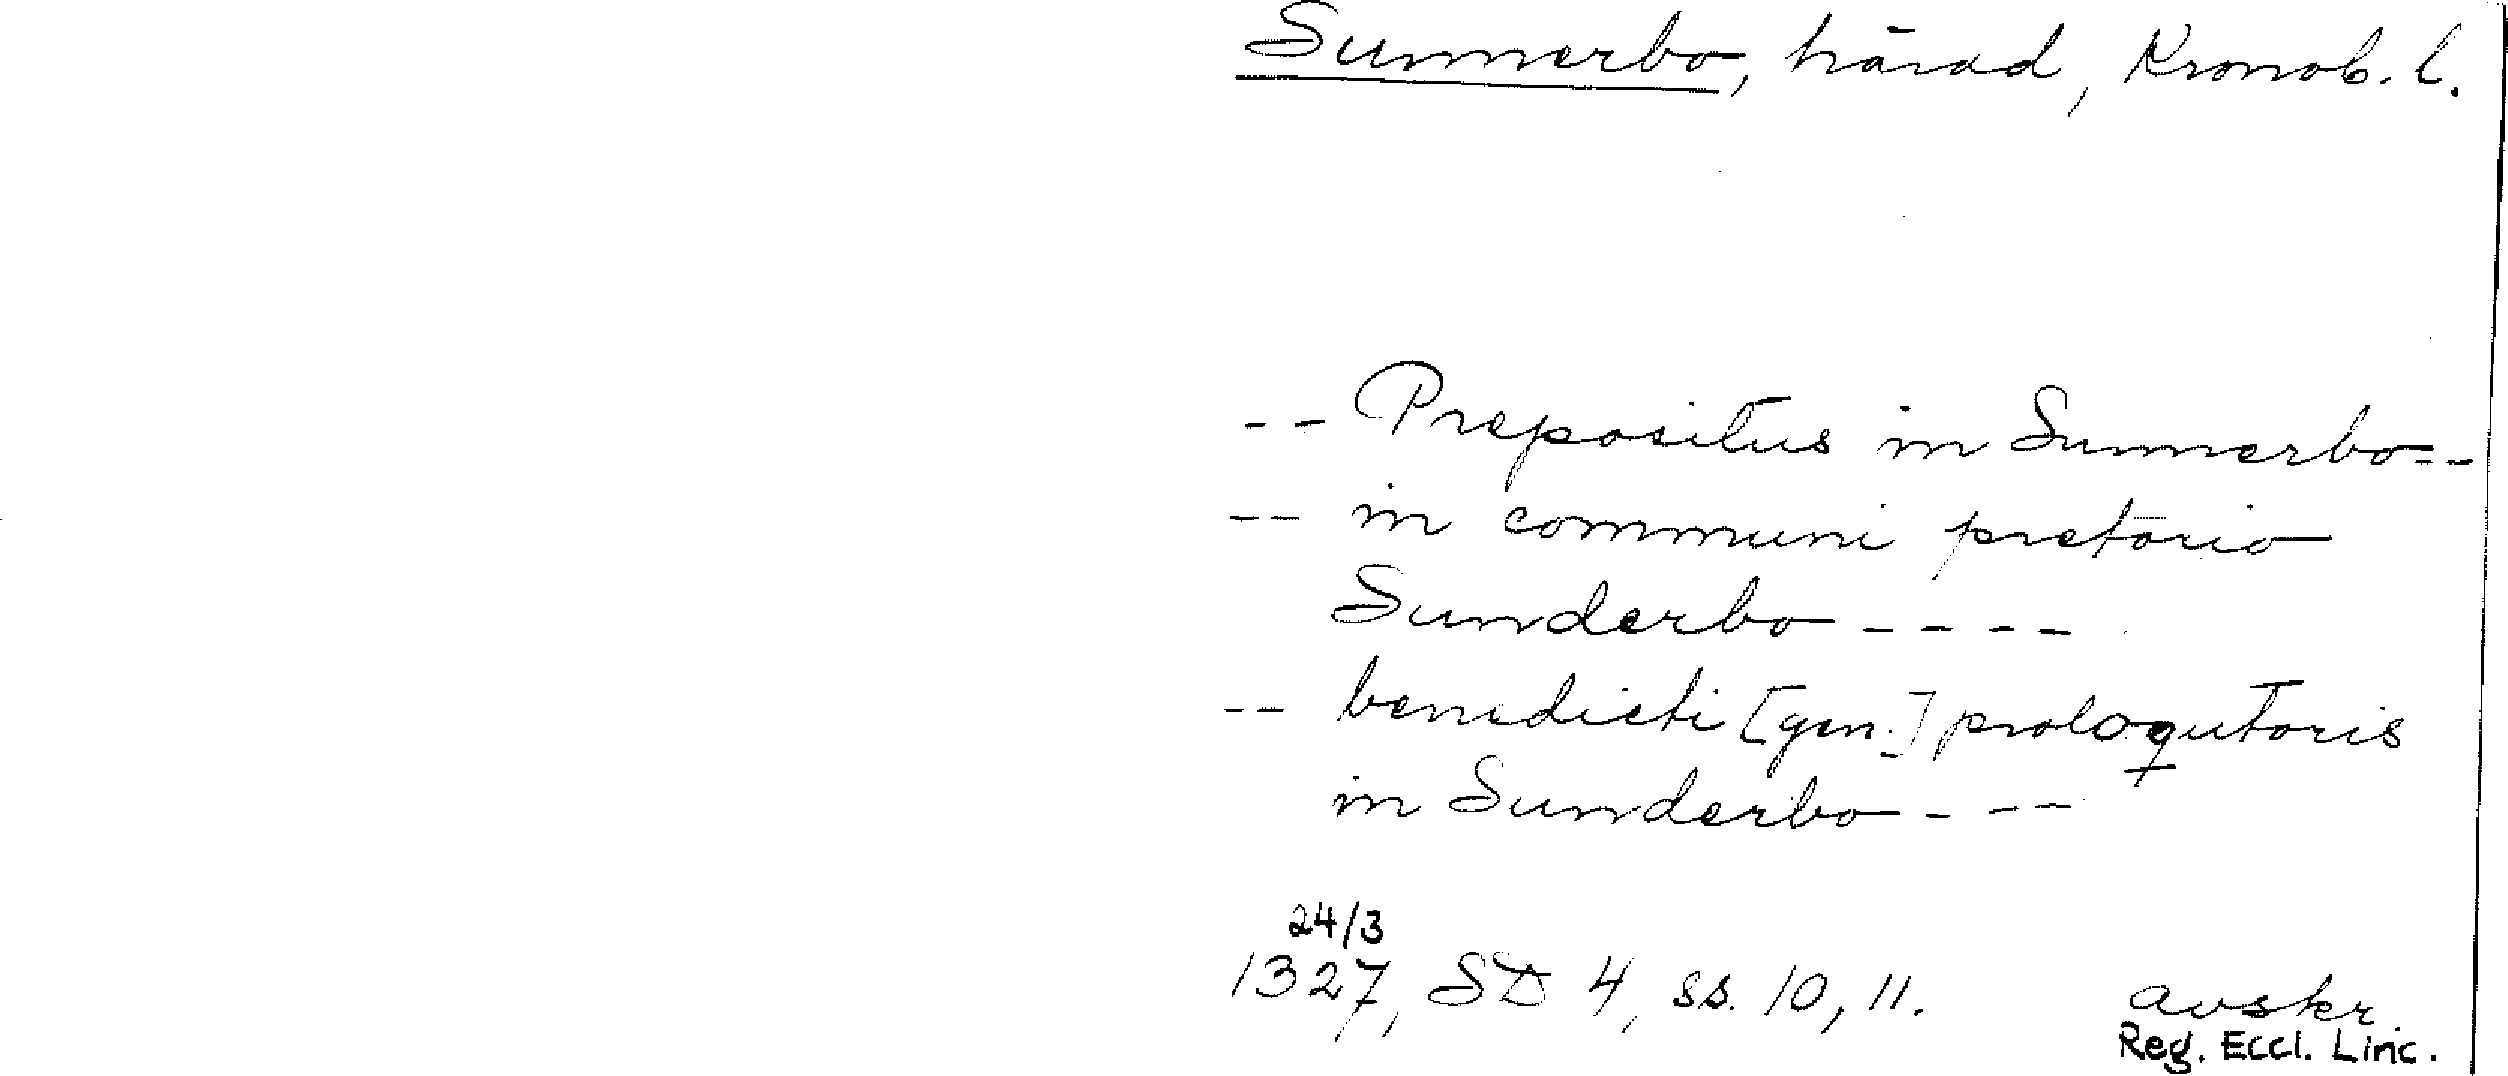 Sunnerbo, härad, Kronob. l.
-- Prepositus in Sunnerbo --
-- in communi pretorio
Sunderbo ----
-- benedicti [gen.] proloqutoris
in Sunderbo ---
24/3
1327, SD 4, ss. 10, 11.
avskr.
Reg. Eccl. Linc.